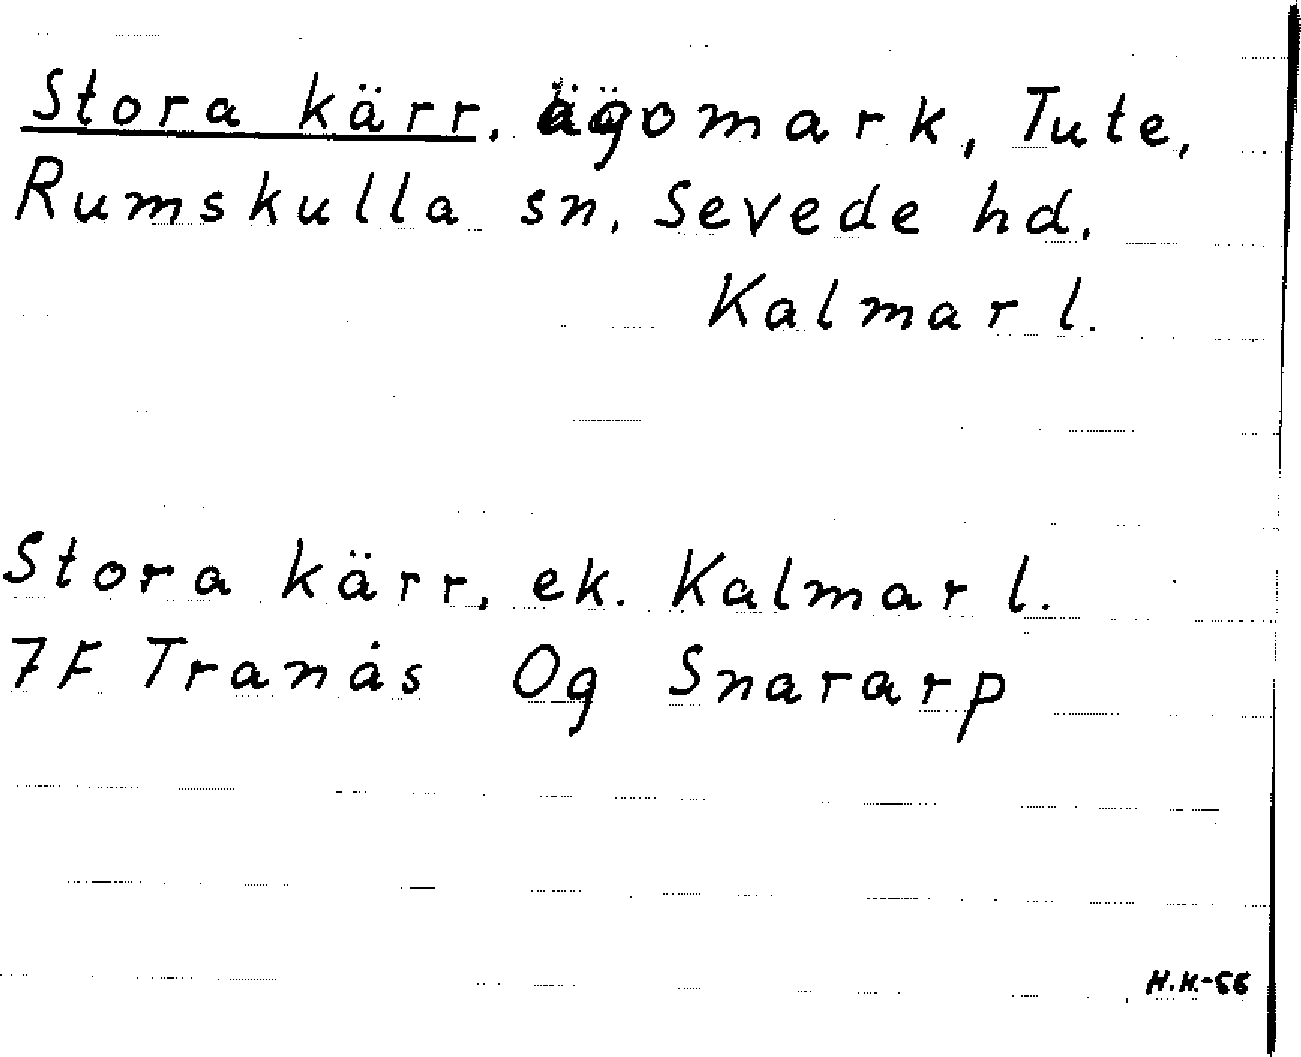 Stora kärr, ägomark, Tute,
Rumskulla sn, Sevede hd,
Kalmar l.
Stora kärr, ek. Kalmar l.
7F Tranås Og Snararp
H.K-56